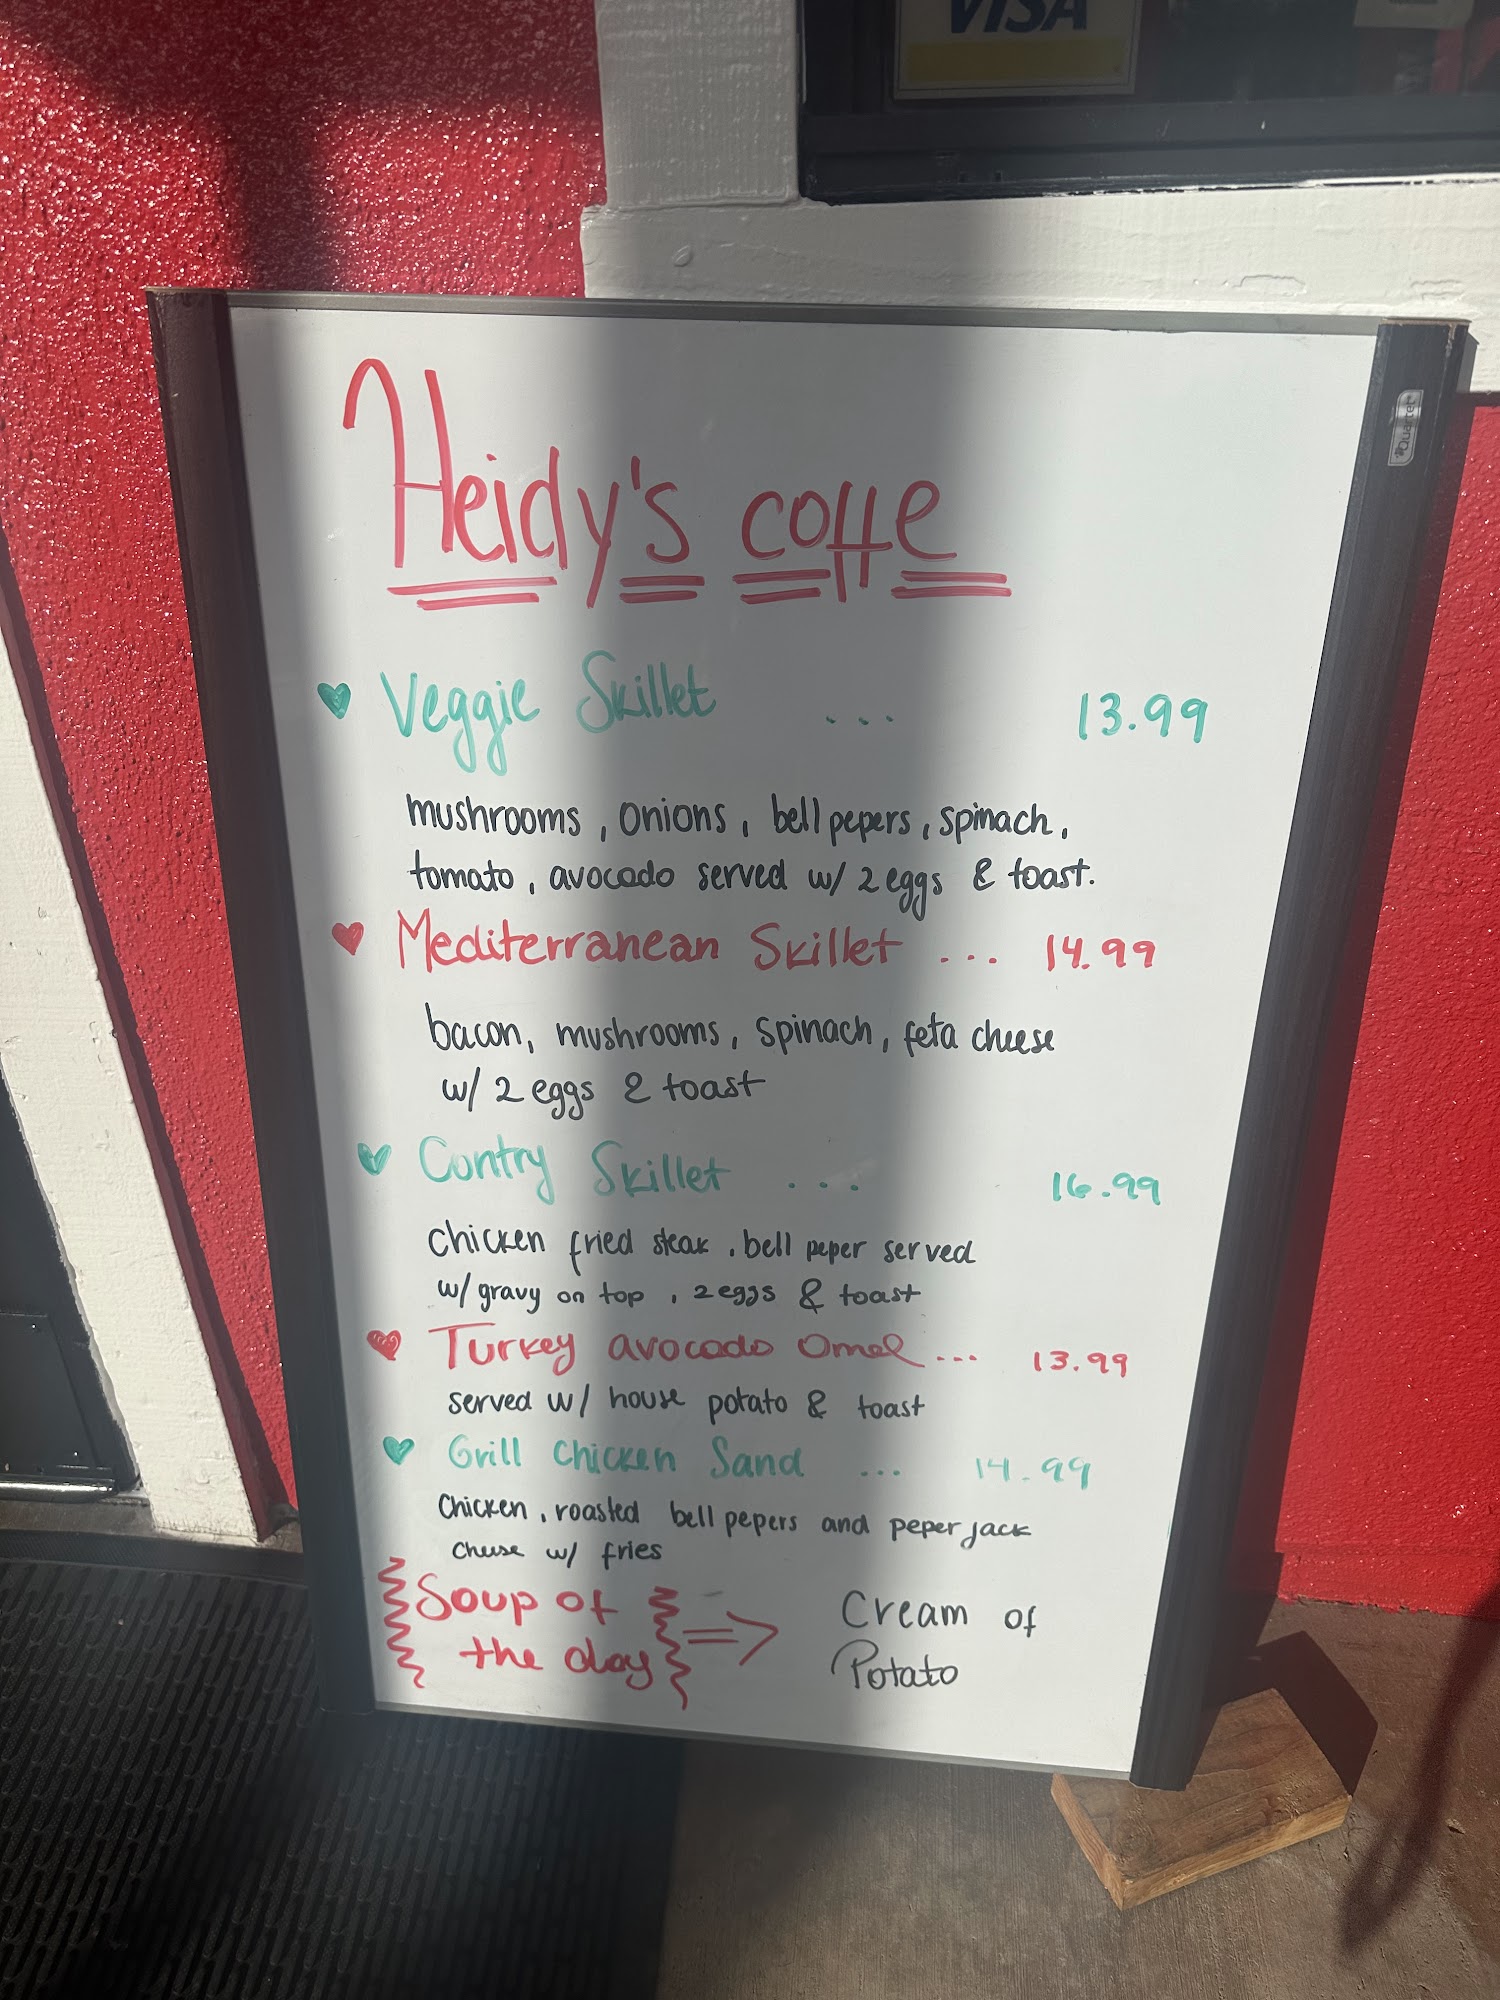 VISA
Quartet
Heidy's coffe
Veggie Skillet ... 13.99
mushrooms, onions, bell pepers, spinach,
tomato, avocado served w/ 2 eggs & toast.
Mediterranean Skillet ... 14.99
bacon, mushrooms, spinach, feta cheese
w/ 2 eggs & toast
Contry Skillet ... 16.99
chicken fried steak, bell peper served
w/ gravy on top, 2 eggs & toast
Turkey avocado Omel... 13.99
served w/ house potato & toast
Grill Chicken Sand ... 14.99
Chicken, roasted bell pepers and peper jack
cheese w/ fries
Soup of
the day
⇒
Cream of
Potato